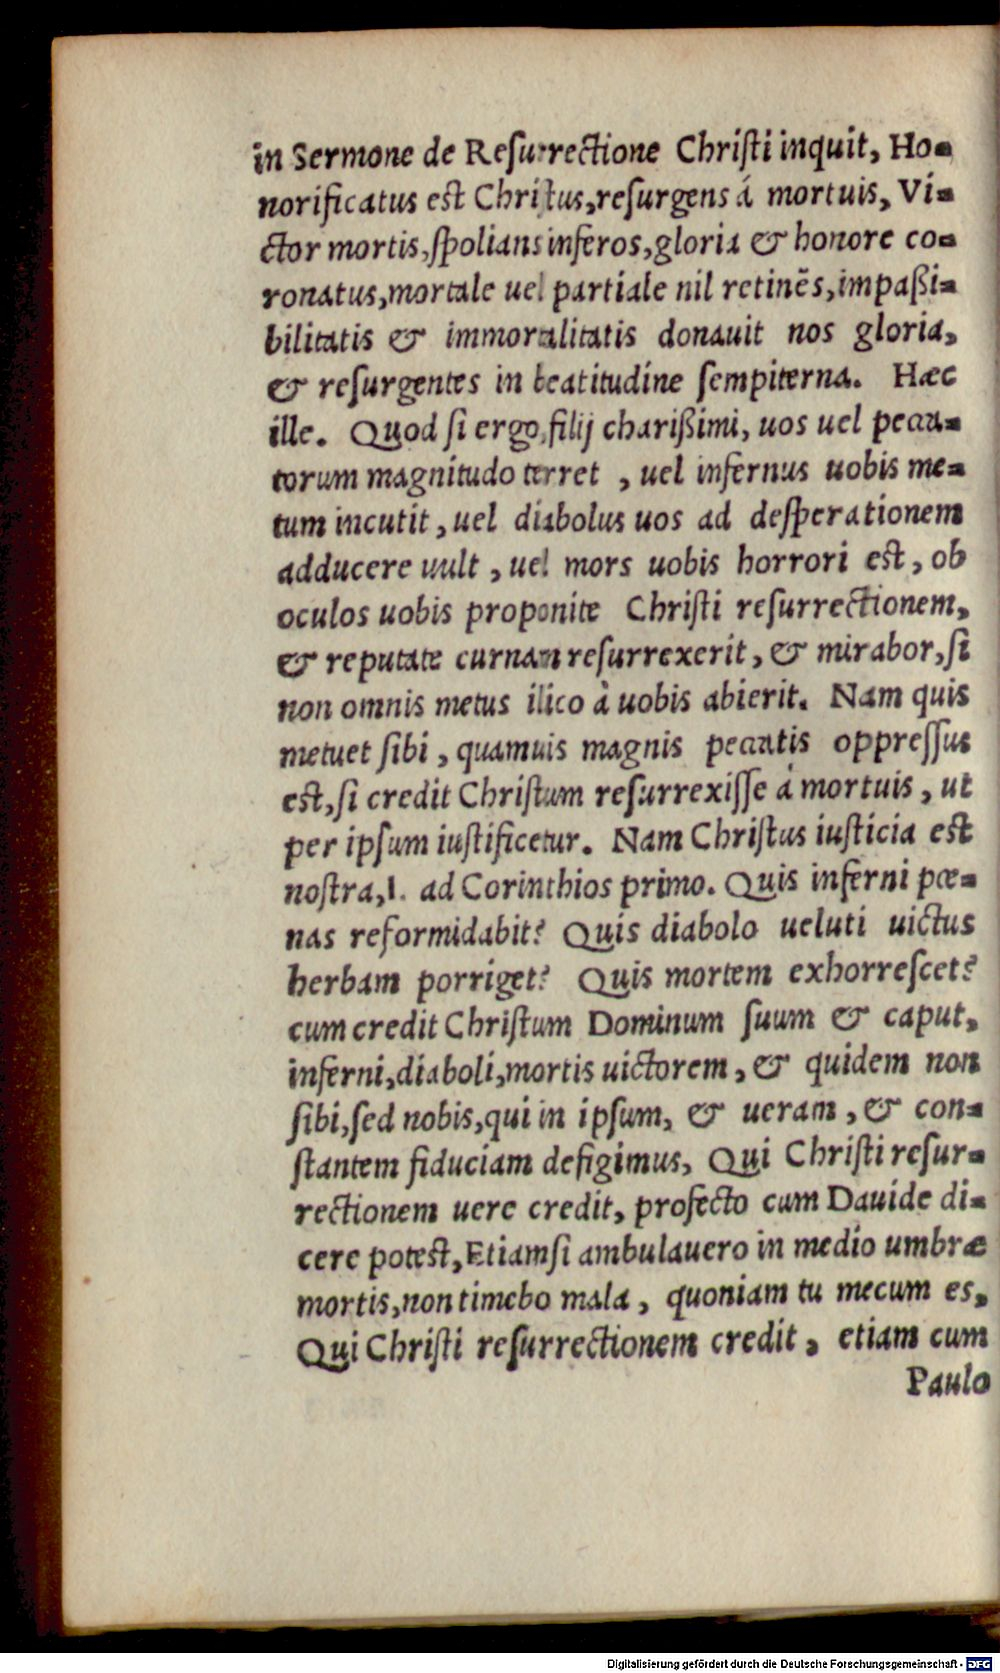 in Sermone de Resurrectione Christi inquit, Ho-
norificatus est Christus, resurgens á mortuis, Vi-
ctor mortis, spolians inferos, gloria & honore co-
ronatus, mortale uel partiale nil retinẽs, impaßi-
bilitatis & immortalitatis donauit nos gloria,
& resurgentes in beatitudine sempiterna. Hæc
ille. Quod si ergo, filij charißimi, uos uel pecca-
torum magnitudo terret, uel infernus uobis me-
tum incutit, uel diabolus uos ad desperationem
adducere uult, uel mors uobis horrori est, ob
oculos uobis proponite Christi resurrectionem,
& reputate curnam resurrexerit, & mirabor, si
non omnis metus ilico à uobis abierit. Nam quis
metuet sibi, quamuis magnis peccatis oppressus
est, si credit Christum resurrexisse á mortuis, ut
per ipsum iustificetur. Nam Christus iusticia est
nostra, 1. ad Corinthios primo. Quis inferni pœ-
nas reformidabit? Quis diabolo ueluti uictus
herbam porriget? Quis mortem exhorrescet?
cum credit Christum Dominum suum & caput,
inferni, diaboli, mortis uictorem, & quidem non
sibi, sed nobis, qui in ipsum, & ueram, & con-
stantem fiduciam defigimus, Qui Christi resur-
rectionem uere credit, profecto cum Dauide di-
cere potest, Etiamsi ambulauero in medio umbræ
mortis, non timebo mala, quoniam tu mecum es,
Qui Christi resurrectionem credit, etiam cum
Paulo
Digitalisierung gefördert durch die Deutsche Forschungsgemeinschaft - DFG